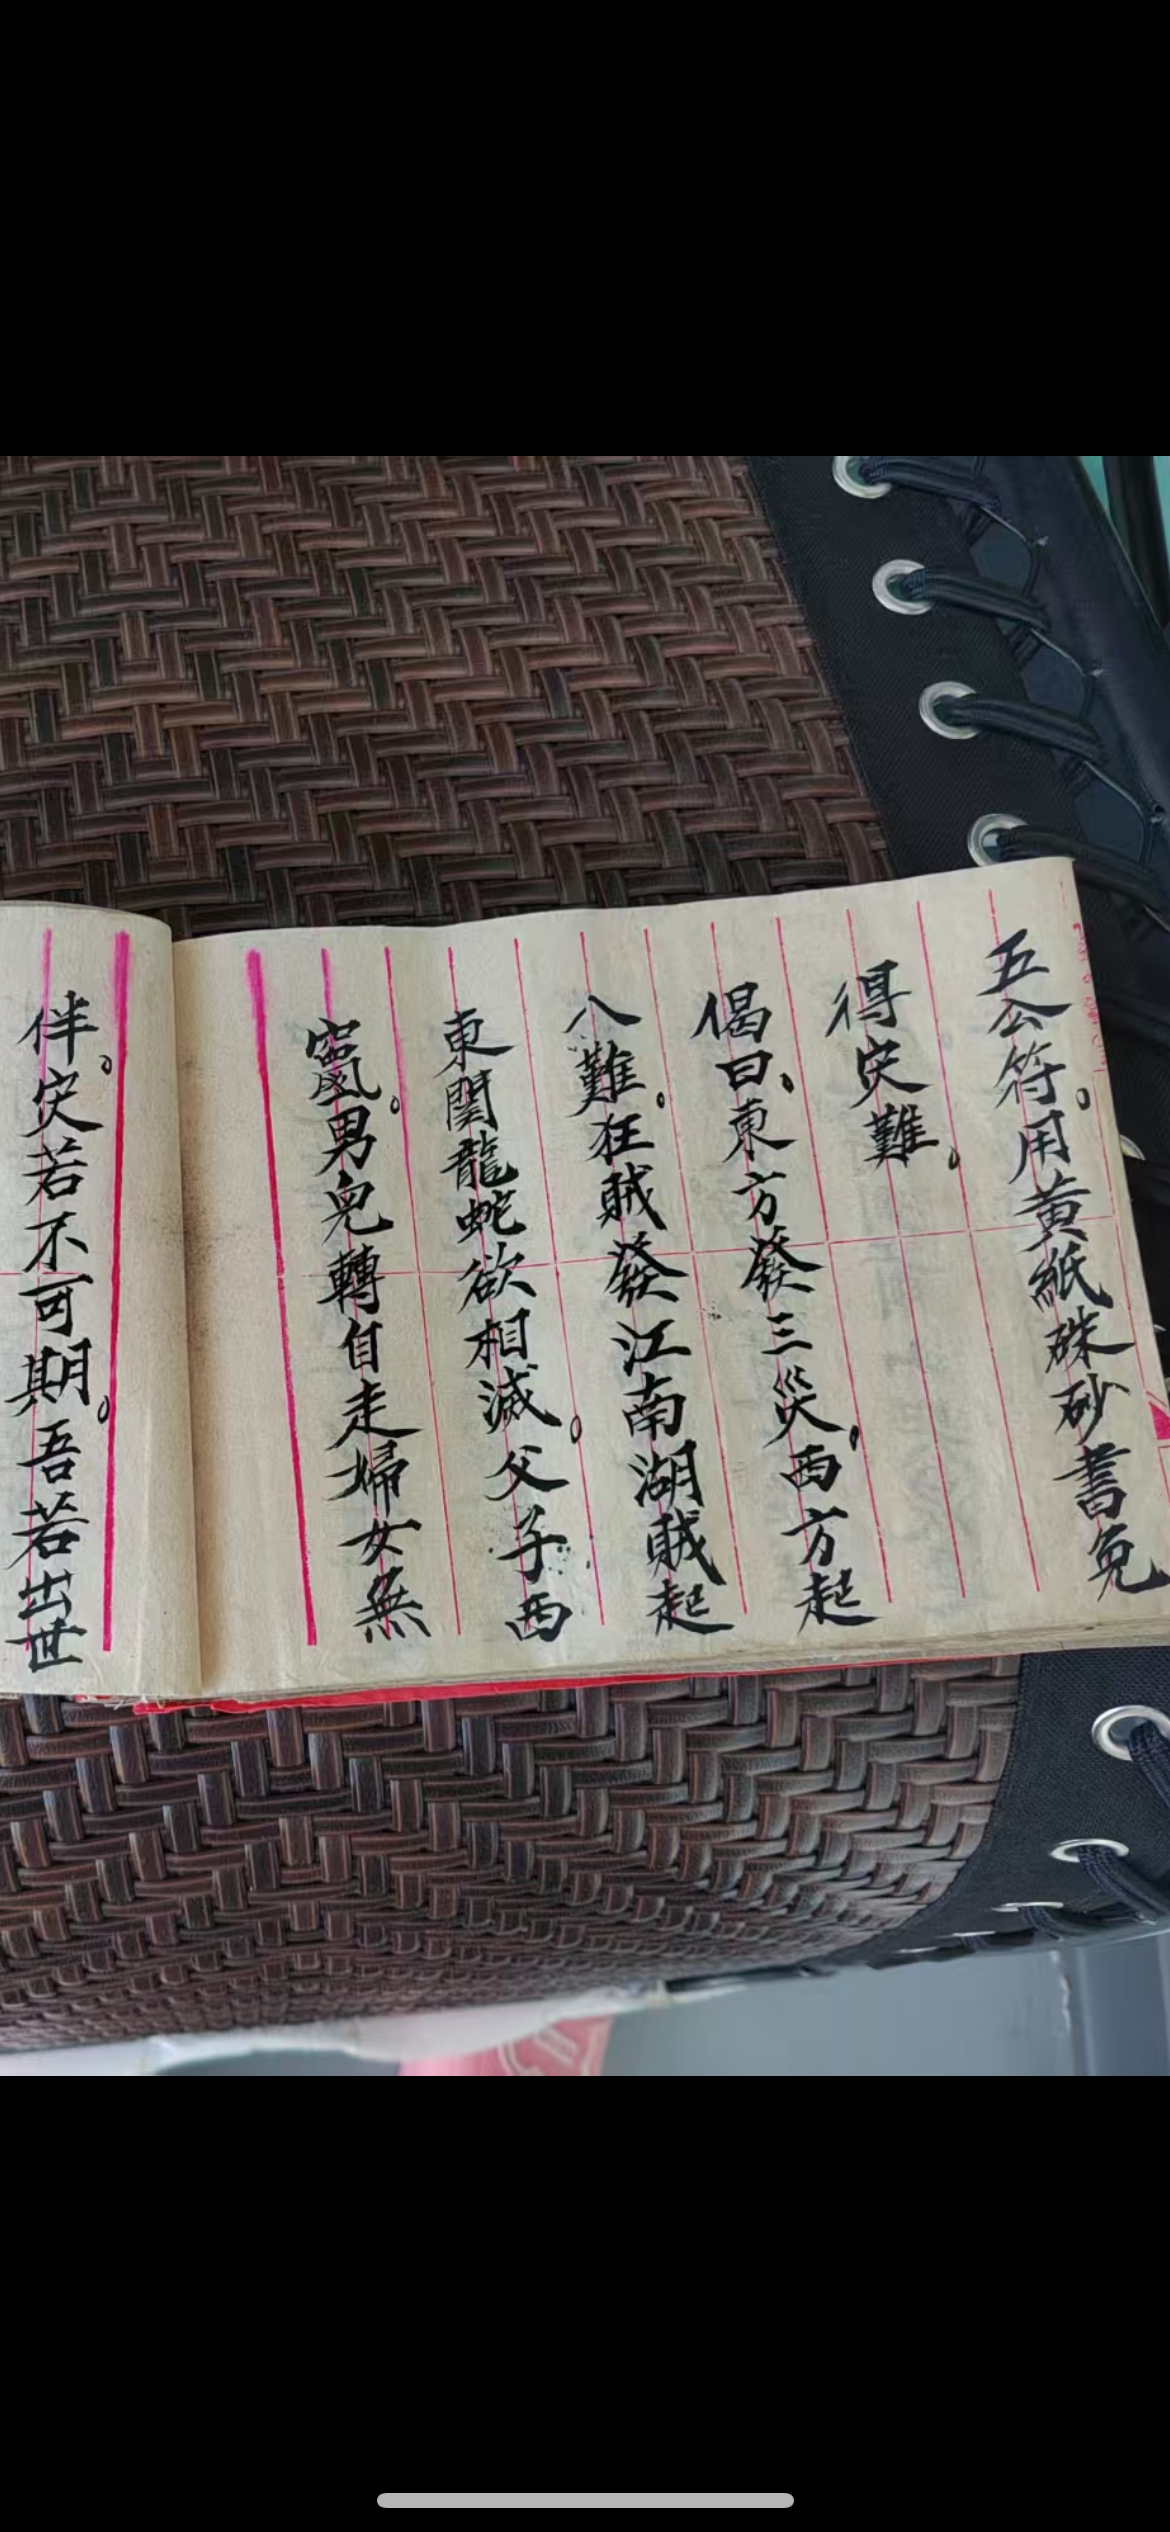 五公符。用黄紙硃砂書免
得灾難。
偈曰、東方發三災，西方起
八難。狂賊發江南湖賊起
東閩龍蛇欲相滅。父子西
。男兒轉自走婦女無
伴。灾若不可期。吾若出世